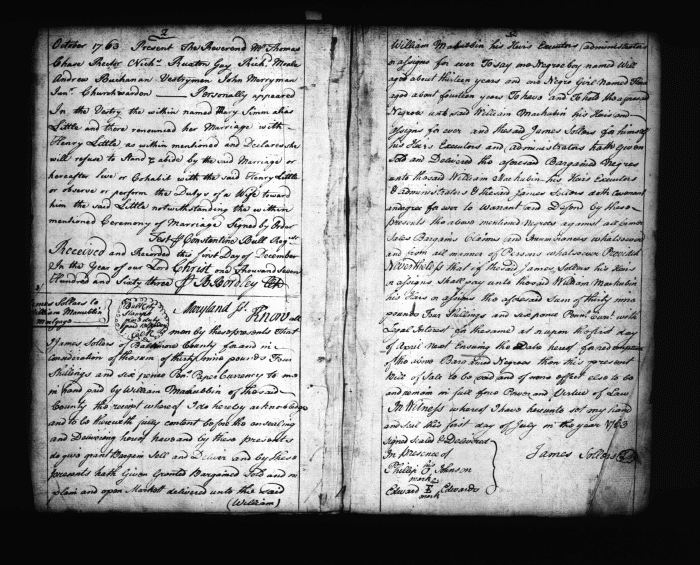 2
October 1763 Present The Reverend Mr Thomas
Chase Rector Nichs Ruxton Gay Richd Moale
Andrew Buchanan Vestrymen John Merryman
Junr Churchwarden Personally appeared
In the Vestry the within named Mary Simm alias
Little and there renounced her Marriage with
Henry Little as within mentioned and Declares she
will refuse to Stand & abide by the said Marriage or
hereafter live or Cohabit with the said Henry Little
or observe or perform the Dutys of a Wife toward
him the said Little notwithstanding the within
mentioned Ceremony of Marriage Signed by Order
Test Constantine Bull Regr
Received and Recorded this First Day of December
In the Year of our Lord Christ one Thousand Seven
Hundred and Sixty three B Bordley
James Sollars to
William Mortgage
Maryland Ss. Know all
men by these presents That
I James Sollars of Baltimore County for and in
consideration of the sum of thirty nine pounds Four
Shillings and six pence Paper Currency to me
in hand paid by William Mackubin of the said
County the receipt whereof I do hereby acknowledge
and to be therewith fully content before the ensealing
and Delivering hereof have and by these presents
do give grant Bargain Sell and Deliver and by these
presents hath Given Granted Bargained Sold and in
plain and open Markett delivered unto the said
(William)
William Mackubin his Heirs Executors administrators
or assigns for ever To say one Negroe boy named Will
aged about thirteen years and one Negro Girl Named
aged about fourteen years To have and to hold the aforesaid
Negroes unto said William Mackubin his Heirs and
assigns for ever and the said James Sollars for himself
his Heirs Executors and administrators hath Given
Sold and Delivered the aforesaid Bargained Negroes
unto the said William Mackubin his Heirs Executors
& administrators & the said James Sollars doth covenant
and agree for ever to Warrant and Defend by these
presents the above mentioned Negroes against all
Sales Bargains Claims and Incumbrances whatsoever
and from all manner of Persons whatsoever Provided
Nevertheless that if the said James Sollars his Heirs
or assigns shall pay unto the said William Mackubin
his Heirs or assigns the aforesaid Sum of thirty nine
pounds Four Shillings and six pence with
Legal Interest for the same at or upon the first day
of April Next Ensuing the Date hereof for redemption
of the Bargained Negroes then this present
Bill of Sale to be void and of none effect else to be
and remain in full force Power and Virtue of Law
In Witness whereof I have hereunto set my hand
and seal this first day of July in the year 1763
Signed Sealed & Delivered
In presence of
James Sollers
Phillip Johnson
mark
Edward E Edwards
mark